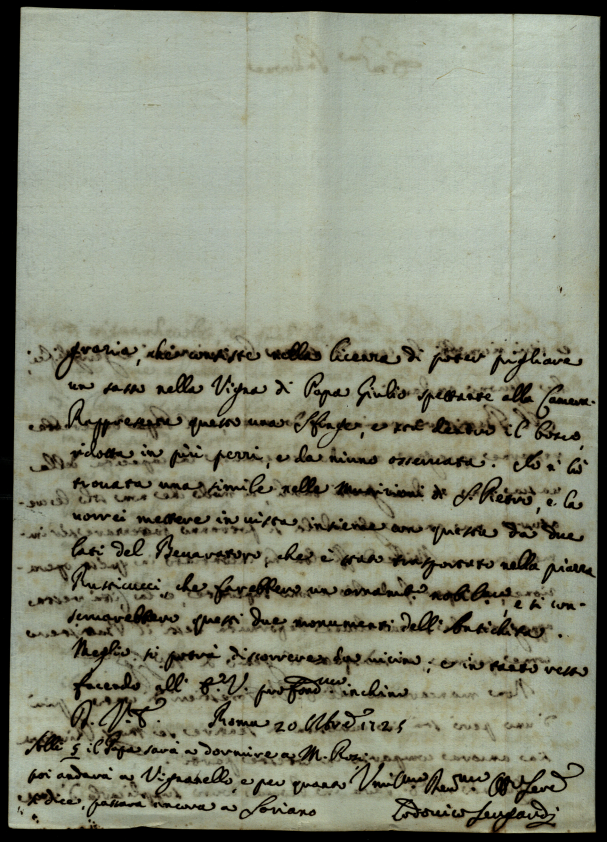 grazia, che consiste nella licenza di poter pigliare
un sasso nella Vigna di Papa Giulio spettante alla Camera.
Rappresenta questo una Sfinge, e sta dentro il bosco,
ridotta in più pezzi, e da niuno osservata. Io n' hò
trovata una simile nelle Munizioni di S. Pietro, e la
vorrei mettere in vista insieme con questa da due
lati del Beveratoro, che è stato trasportato nella piazza
Rusticucci che farebbero un ornamto nobile, e si con-
servarebbero questi due monumenti dell' Antichità.
Meglio si potrà discorrere da vicino, e in tanto resto
facendo all' V. profondmo inchino
Roma 20 1725
Alli 5 il Papa sarà a dormire a M. Rosi
poi andarà a Vignanello, e per quanto Umilmo
si dice, passarà ancora a Soriano Lodovico Sergardi